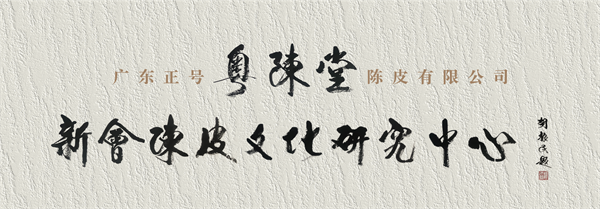 广东正号粤陳堂陈皮有限公司
新會陳皮文化研究中心